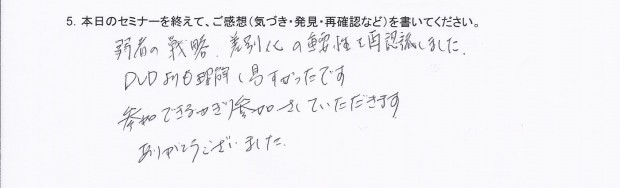 5. 本日のセミナーを終えて、ご感想(気づき・発見・再確認など)を書いてください。
弱者の戦略、差別化の重要性を再認識しました。
DVDよりも理解し易すかったです
参加できるかぎり参加させていただきます
ありがとうございました。